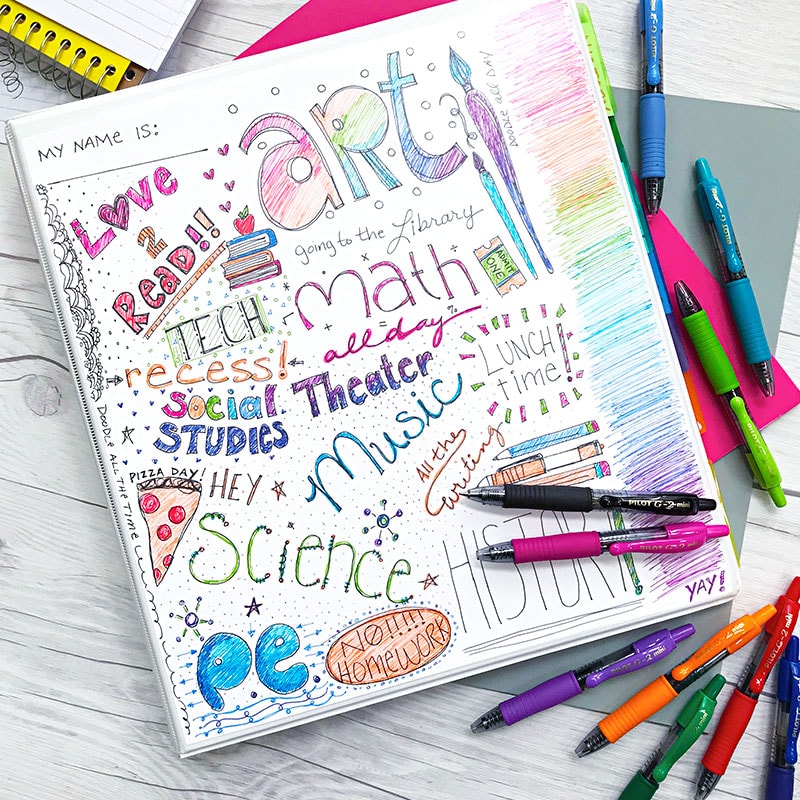 MY NAME IS:
art
DOODLE ALL DAY
LOVE
2
READ!!
going to the Library
math
ADMIT
ONE
TECH
all day
recess!
LUNCH
time!
Social
STUDIES
Theater
Music
DOODLE ALL THE TIME
PIZZA DAY!
HEY
All the
writing
Science
HISTORY
YAY!
pe
NO!!!!!
HOMEWORK
PILOT G-2 mini
PILOT G-2 mini
PILOT G-2 mini
PILOT